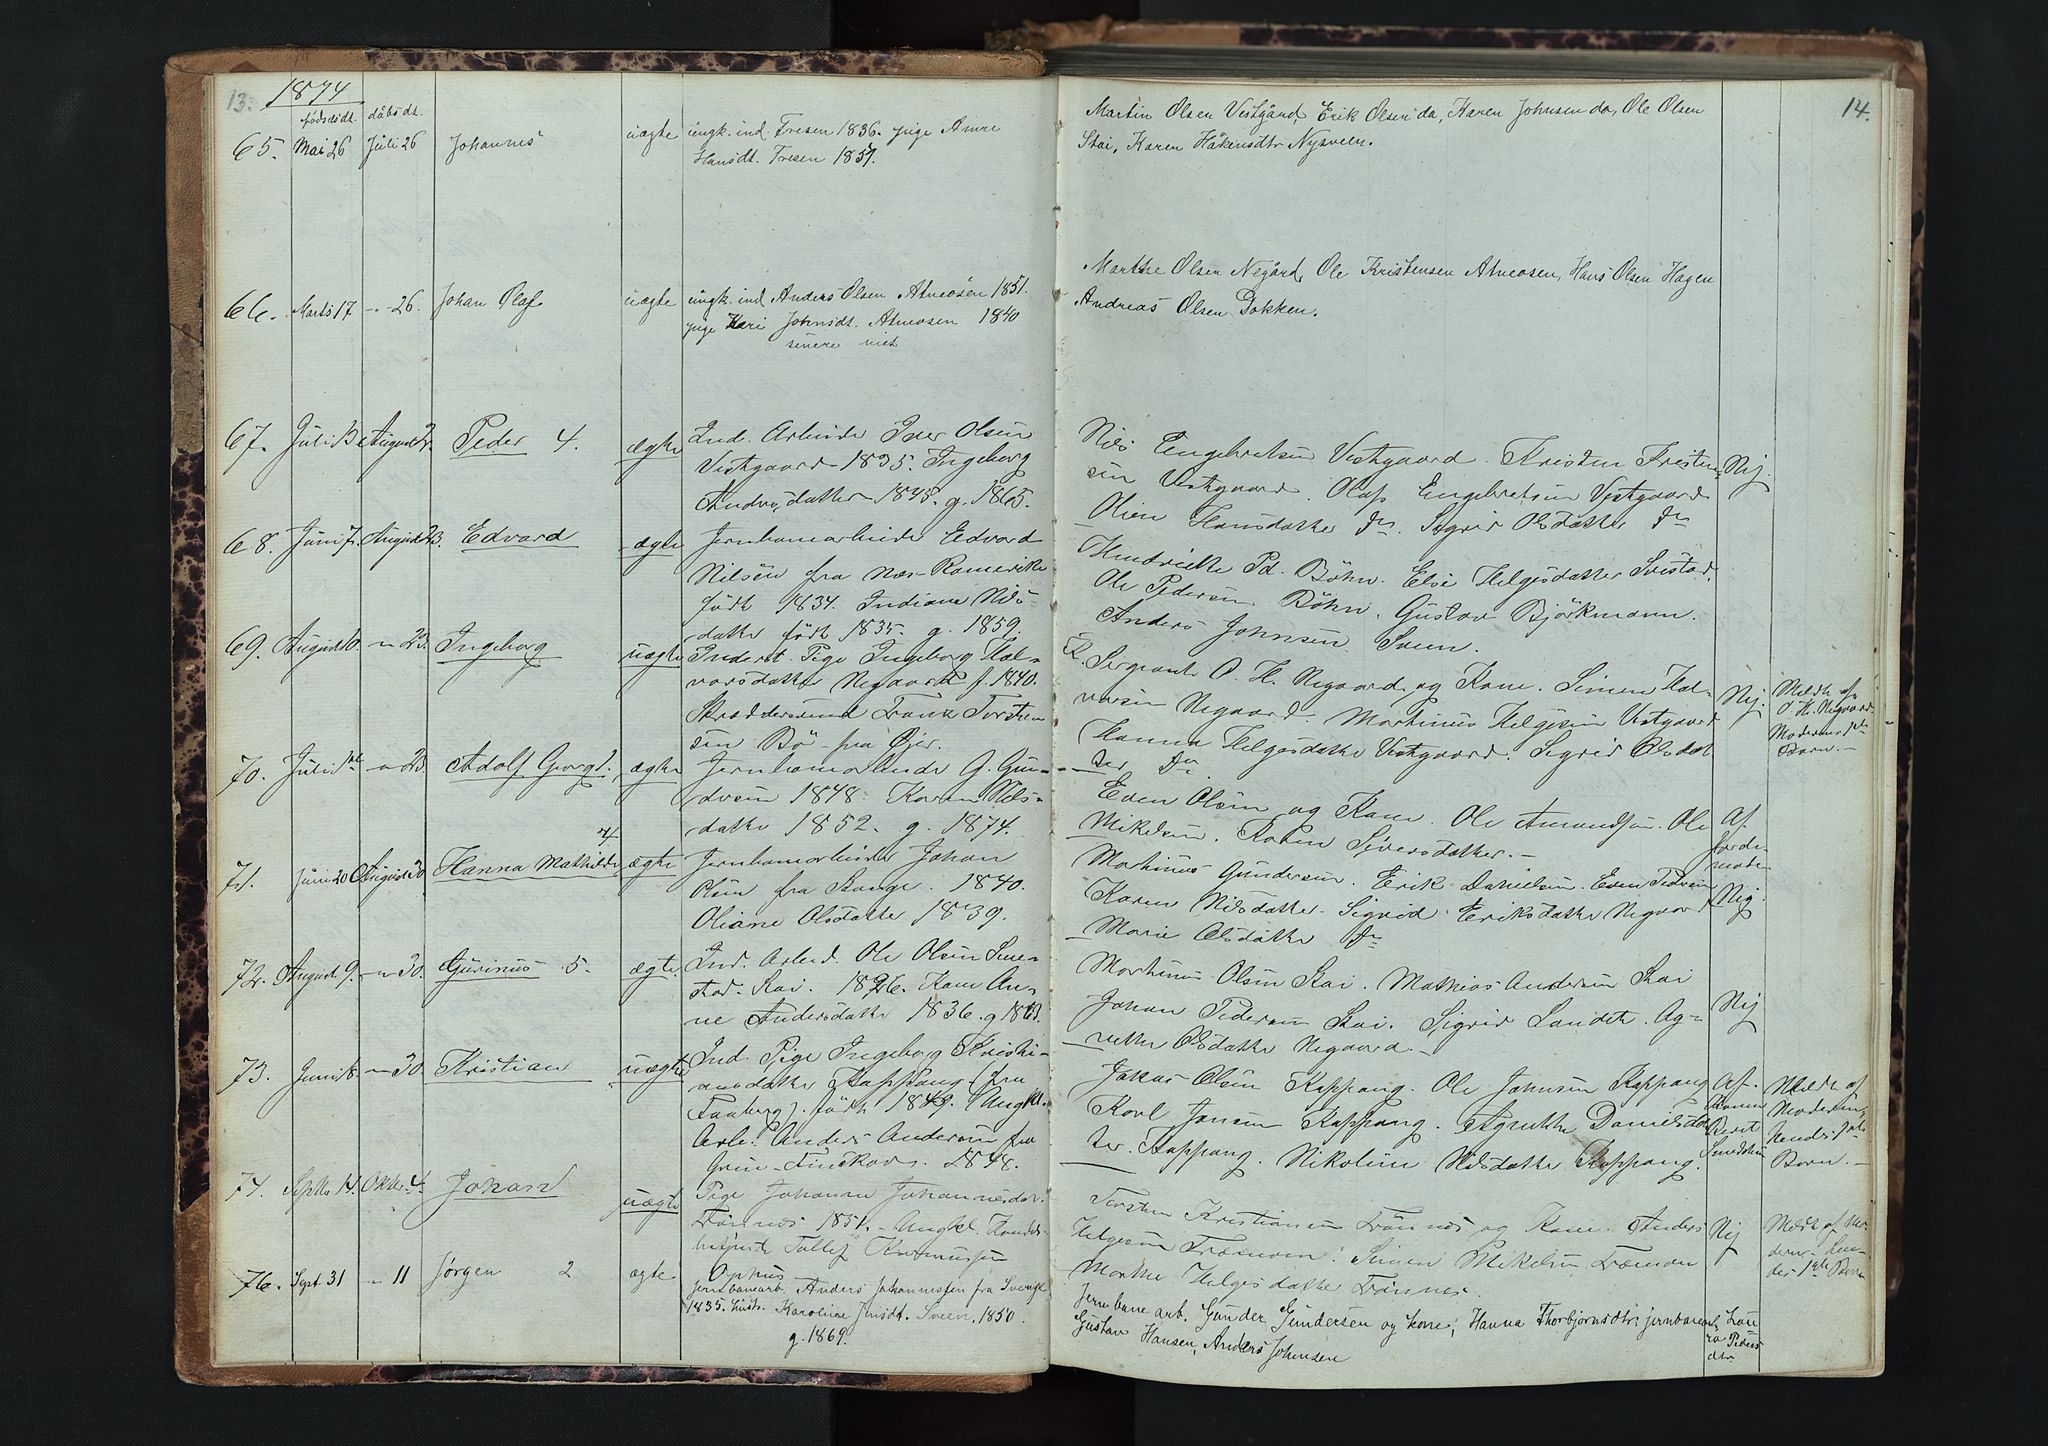 13.
1874
fødselsdt. dåbsdt.
65. Mai 26 Juli 26 Johannes uægte ungk. ind. Tresen 1836. pige Anne
Hansdt. Tresen 1851.
66. Marts 17 -"- 26. Johan Olaf uægte ungk. ind Anders Olsen Atneosen 1851.
pige Kari Johnsdt. Atneosen 1840
senere viet
67. Juli 13 August 2. Peder 4. ægte Ind. Arbeider Iver Olsen
Vestgaard 1835. Ingeborg
Andersdatter 1845. g. 1865.
68. Juni 7. August 23. Edvard ægte Jernbanearbeider Edvard
Nilsen fra Næs Romerike
født 1834. Indiana Nils-
datter født 1835. g. 1859.
69. August 10. -"- 23. Ingeborg uægte Inderst. Pige Ingeborg Hal-
vorsdatter Negaard f. 1840.
Skræddersvend Franz Torsten-
sen Bö fra Øier.
70. Juli -"- 23. Adolf Georg 1. ægte Jernbanearbeider G. Gun-
dersen 1848. Karen Nils-
datter 1852. g. 1874.
71. Juni 20 August 30. Hanna Mathilde 4. ægte Jernbanearbeider Johan
Olsen fra Stange. 1840.
Oliane Olsdatter 1839.
72. August 9. -"- 30. Gurinus 5. ægte Ind. Arbeid. Ole Olsen Sme-
stad. Stai. 1826. Kone An-
ne Andersdatter 1836. g. 1863.
73. Juni 8. -"- 30. Kristian uægte Ind. Pige Ingeborg Kristi-
ansdatter Kappang (fra
Faaberg). født 1849. Ungkl.
Arb. Anders Andersen fra
Grue-Finskov. 1848.
74. Septbr 14. Oktbr. 4. Johan uægte Pige Johanne Johannesdat.
Trønnes 1851. Ungkl. Handels-
betjent Tollef Rasmussen
Ophus
76. Sept. 31 -"- 11 Jørgen 2 ægte jernbanearb. Anders Johannessen fra Sverige
1835. hust. Karoline Jensdt. Sveen. 1850.
g. 1869.
14.
Martin Olsen Vestgård, Erik Olsen do, Karen Johnsen do, Ole Olsen
Stai, Karen Håkensdtr Nysveen.
Marthe Olsen Negård, Ole Kristensen Atneosen, Hans Olsen Hagen
Andreas Olsen Dokken.
Nils Engebretsen Vestgaard. Kristen Kresten-
sen Vestgaard. Olaf Engebretsen Vestgaard
Olien Hansdatter do. Sigrid Olsdatter do
Nej.
Hendrikke Pd. Böhn. Elie Helgesdatter Svestad.
Ole Pedersen Böhn. Gustav Björkmann.
Anders Johnsen Sveen.
Sergeant O. H. Negaard og Kone. Simen Hal-
vorsen Negaard. Martinus Helgesen Vestgaard
Hanna Helgesdatter Vestgaard. Sigrid Olsdat
ter do
Nej.
Meldt af
O. H. Negaard
Moderens 1ste
Barn.
Even Olsen og Kone. Ole Amundsen. Ole
Mikelsen. Karen Siversdatter.
Af
Jorde-
moder
Martinus Gundersen. Erik Danielsen. Even Pedersen
Karen Nilsdatter. Sigrid Eriksdatter Negaard
Marie Olsdatter do
Nej
Martinus Olsen Stai. Mathias Andersen Stai
Johan Pedersen Stai. Sigrid Landet. Ag-
nette Olsdatter Negaard.
Nej
Jakob Olsen Kappang. Ole Johnsen Kappang
Karl Jonsen Kappang. Agnette Danielsdat
ter. Kappang. Nikoline Nilsdatter Kappang.
Af
Konen
Berit
Simensdtr
Meldt af
Moderen,
hendes 1ste
Barn.
Torsten Kristiansen Trønnes og Kone. Anders
Helgesen Træmoen. Simen Mikelsen Træmoen
Marthe Helgesdatter Trønnes.
Nej
Meldt af Mo-
deren. hen-
des 1ste Barn
Jernbane arb. Gunder Gundersen og kone, Hanna Thorbjørnsdtr, jernbanearb.
Gustav Hansen, Anders Johnsen
Lau-
ra Peders
dtr.